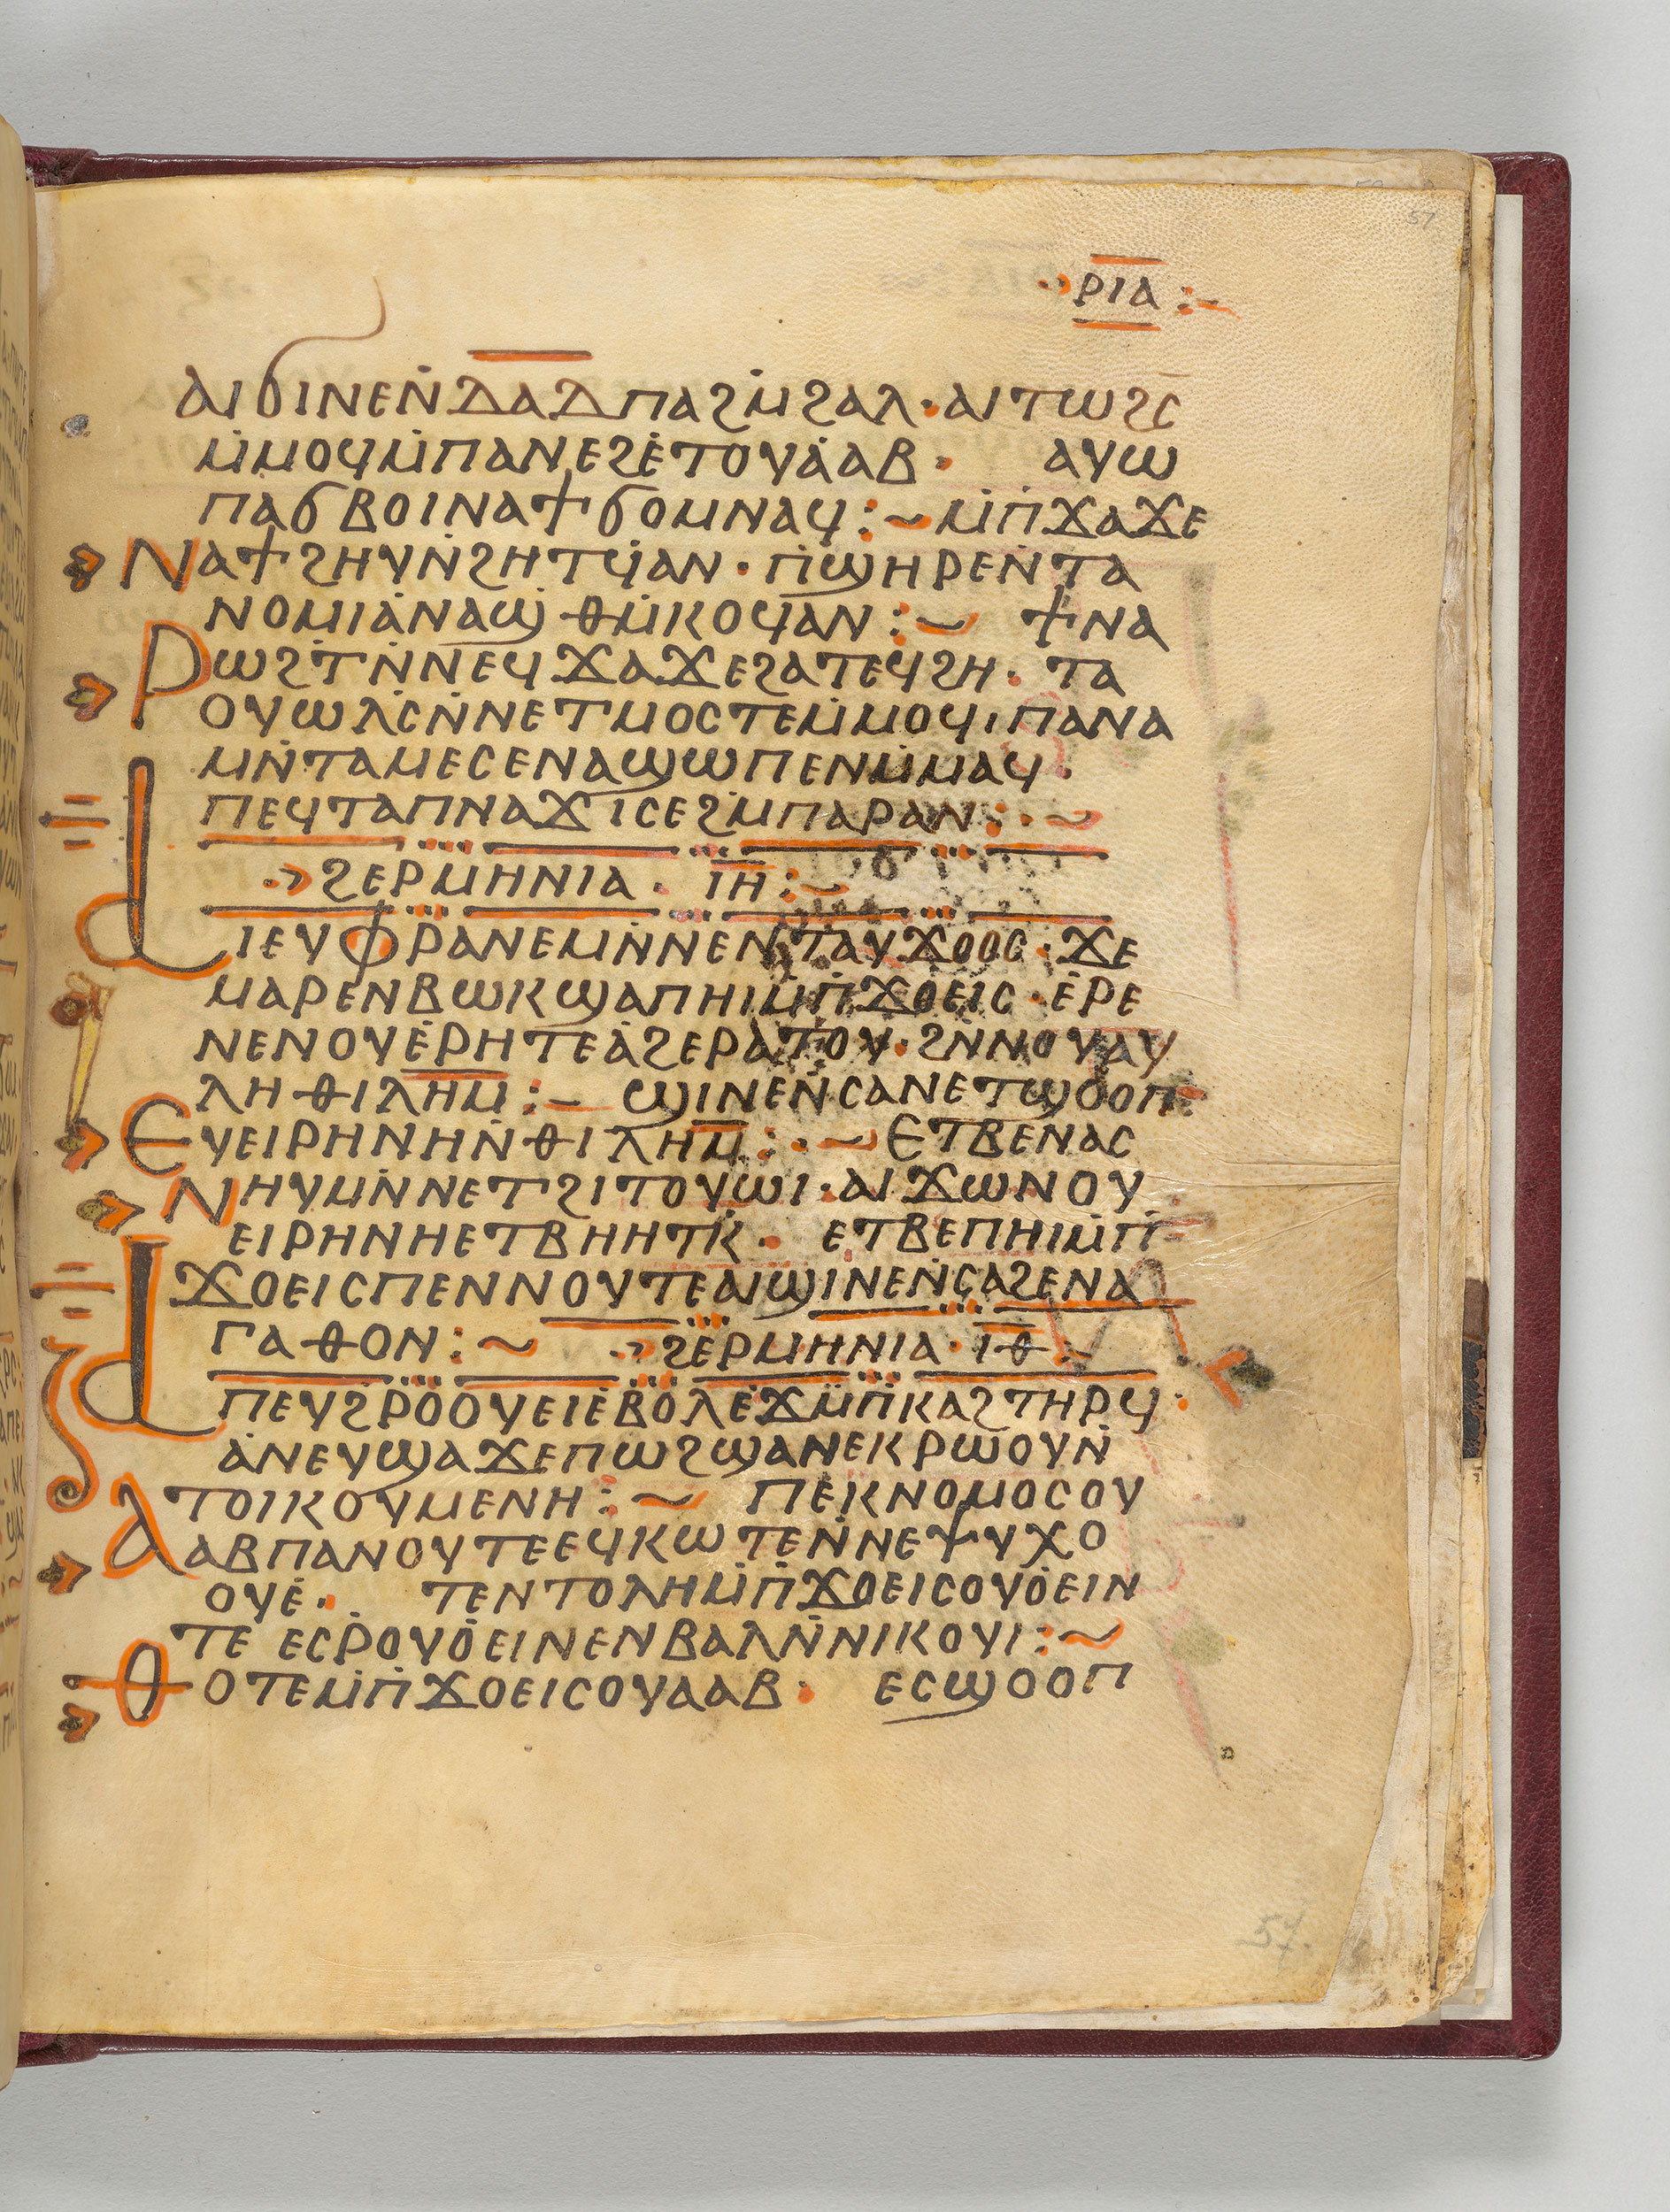 57
ⲣⲓⲁ :~
ⲁⲓϭⲓⲛⲉⲛ̇ⲇⲁⲇⲡⲁϩⲙ̇ϩⲁⲗ · ⲁⲓⲧⲱϩⲥ
ⲙ̇ⲙⲟϥⲙ̇ⲡⲁⲛⲉϩⲉ̇ⲧⲟⲩⲁ̇ⲁⲃ · ⲁⲩⲱ
ⲡⲁϭⲃⲟⲓⲛⲁϯϭⲟⲙⲛⲁϥ :~ ⲙ̇ⲡ̇ϫⲁϫⲉ
ⲛⲁϯϩⲏⲩⲛ̇ϩⲏⲧϥ̇ⲁⲛ · ⲡ̇ϣⲏⲣⲉⲛ̇ⲧⲁ
ⲛⲟⲙⲓⲁ̇ⲛⲁϣ̇ⲑⲙ̇ⲕⲟϥⲁⲛ :~ ϯⲛⲁ
ⲣⲱϩⲧ̇ⲛ̇ⲛⲉϥϫⲁϫⲉϩⲁⲧⲉϥϩⲏ · ⲧⲁ
ⲟⲩⲱⲗⲥ̇ⲛ̇ⲛⲉⲧⲙⲟⲥⲧⲉⲙ̇ⲙⲟϥ · ⲡⲁⲛⲁ
ⲙⲛ̇ⲧⲁⲙⲉⲥⲉⲛⲁϣⲱⲡⲉⲛⲙ̇ⲙⲁϥ ·
ⲡⲉϥⲧⲁⲡⲛⲁϫⲓⲥⲉϩⲙ̇ⲡⲁⲣⲁⲛ : · ~
ϩⲉⲣⲙⲏⲛⲓⲁ · ⲓ̅ⲏ̅ :~
ⲁⲓⲉⲩⲫⲣⲁⲛⲉⲙⲛ̇ⲛⲉⲛⲧⲁⲩϫⲟⲟⲥ · ϫⲉ
ⲙⲁⲣⲉⲛⲃⲱⲕϣⲁⲡⲏⲓⲙ̇ⲡ̇ϫⲟⲉⲓⲥ · ⲉ̇ⲣⲉ
ⲛⲉⲛⲟⲩⲉ̇ⲣⲏⲧⲉⲁ̇ϩⲉⲣⲁⲧⲟⲩ · ϩⲛ̇ⲛⲟⲩⲁⲩ
ⲗⲏⲑⲓⲗ̅ⲏ̅ⲙ̅ :~ ϣⲓⲛⲉⲛ̇ⲥⲁⲛⲉⲧϣⲟⲟⲡ
ⲉⲩⲉⲓⲣⲏⲛⲏⲛ̇ⲑⲓⲗ̅ⲏ̅ⲙ̅ : · ~ ⲉⲧⲃⲉⲛⲁⲥ
ⲛⲏⲩⲙⲛ̇ⲛⲉⲧϩⲓⲧⲟⲩⲱⲓ · ⲁⲓϫⲱⲛⲟⲩ
ⲉⲓⲣⲏⲛⲏⲉⲧⲃⲏⲏⲧⲕ̇ · ⲉⲧⲃⲉⲡⲏⲓⲙ̇ⲡ̇
ϫⲟⲉⲓⲥⲡⲉⲛⲛⲟⲩⲧⲉⲁⲓϣⲓⲛⲉⲛ̇ⲥⲁϩⲉⲛⲁ
ⲅⲁⲑⲟⲛ :~ ϩⲉⲣⲙⲏⲛⲓⲁ · ⲓ̅ⲑ̅ :
ⲁⲡⲉⲩϩⲣⲟⲟⲩⲉⲓⲉ̇ⲃⲟⲗⲉ̇ϫⲙ̇ⲡ̇ⲕⲁϩⲧⲏⲣϥ ·
ⲁ̇ⲛⲉⲩϣⲁϫⲉⲡⲱϩϣⲁⲛⲉⲕⲣⲱⲟⲩⲛ̇
ⲧⲟⲓⲕⲟⲩⲙⲉⲛⲏ :~ ⲡⲉⲕⲛⲟⲙⲟⲥⲟⲩ
ⲁⲁⲃⲡⲁⲛⲟⲩⲧⲉⲉϥⲕⲱⲧⲉⲛ̇ⲛⲉⲯⲩⲭⲟ
ⲟⲩⲉ̇ · ⲧⲉⲛⲧⲟⲗⲏⲙ̇ⲡ̇ϫⲟⲉⲓⲥⲟⲩⲟ̇ⲉⲓⲛ
ⲧⲉ ⲉⲥⲣⲟⲩⲟ̇ⲉⲓⲛⲉⲛⲃⲁⲗⲛ̇ⲛⲓⲕⲟⲩⲓ :~
ⲑⲟⲧⲉⲙ̇ⲡ̇ϫⲟⲉⲓⲥⲟⲩⲁⲁⲃ · ⲉⲥϣⲟⲟⲡ
57.